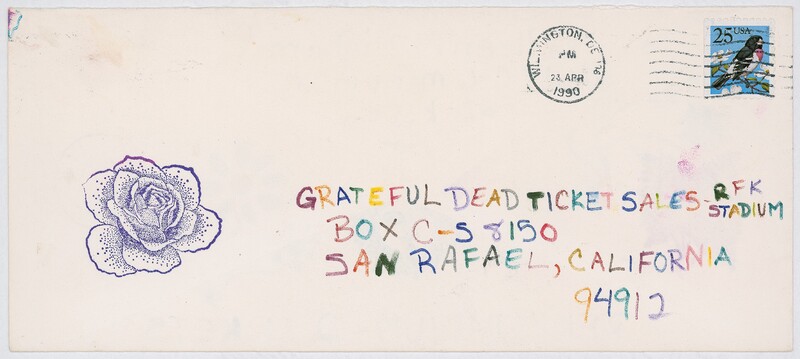 WILMINGTON, DE 198
PM
23 APR
1990
25 USA
GRATEFUL DEAD TICKET SALES - RFK STADIUM
BOX C-S 8150
SAN RAFAEL, CALIFORNIA
94912